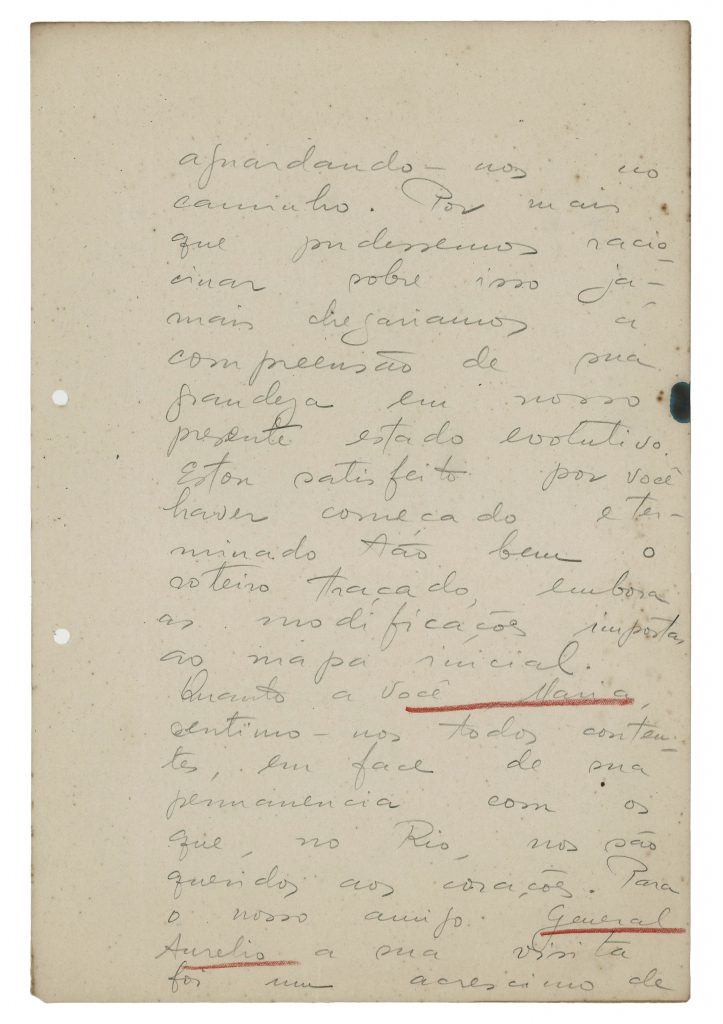 aguardando-nos no
caminho. Por mais
que pudessemos racio
cinar sobre isso ja-
mais chegariamos á
compreensão de sua
grandeza em nosso
presente estado evolutivo.
Estou satisfeito por você
haver começado e ter-
minado tão bem o
roteiro traçado, embora
as modificações impostas
ao mapa inicial.
Quanto a você Maria,
sentimo-nos todos conten-
tes, em face de sua
permanencia com os
que, no Rio, nos são
queridos aos corações. Para
o nosso amigo General
Aurelio a sua visita
foi um acrescimo de